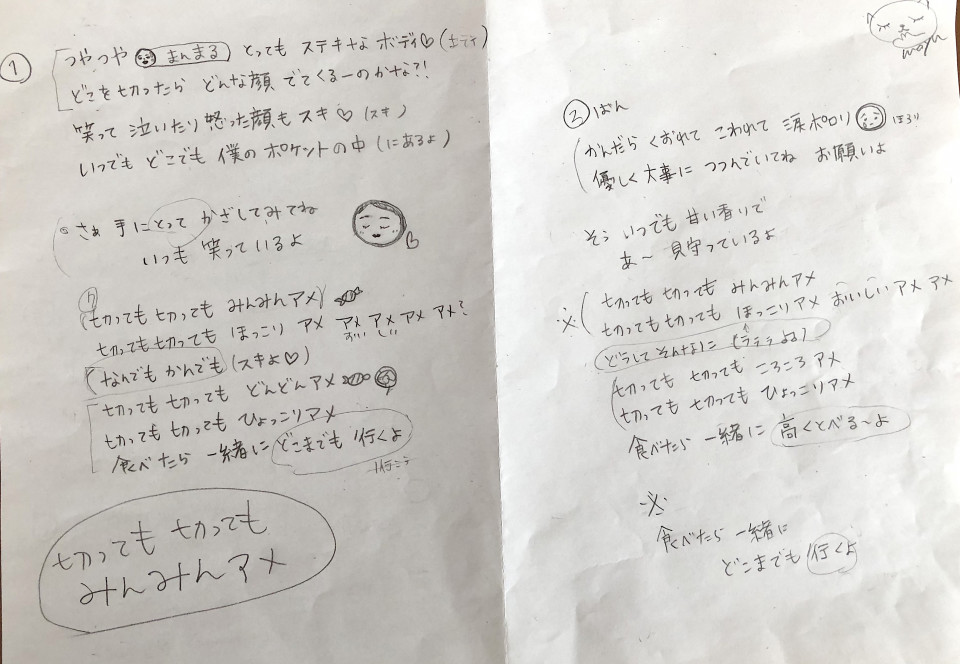 ①
つやつや まんまる とっても ステキなボディ♡(ボディ)
どこを切ったら どんな顔 でてくるーのかな?!
笑って 泣いたり 怒った顔も スキ♡(スキ)
いつでも どこでも 僕のポケットの中(にあるよ)
さぁ 手にとって かざしてみてね
いつも 笑っているよ
切っても切っても みんみんアメ
切っても切っても ほっこり アメ アメ アメ アメ アメ?
おいしい
なんでもかんでも(スキよ♡)
切っても 切っても どんどんアメ
切っても 切っても ひょっこりアメ
食べたら 一緒に どこまでも 行くよ
切っても 切っても
みんみんアメ
②ばん
かんだら くおれて こわれて 涙ポロリ ほろり
優しく大事に つつんでいてね お願いよ
そぅ いつでも 甘い香りで
あ〜 見守っているよ
※ 切っても 切っても みんみんアメ
切っても切っても ほっこりアメ おいしいアメ アメ
どうしてそんなに
切っても 切っても ころころアメ
切っても 切っても ひょっこりアメ
食べたら 一緒に 高くとべる〜よ
※
食べたら 一緒に
どこまでも 行くよ